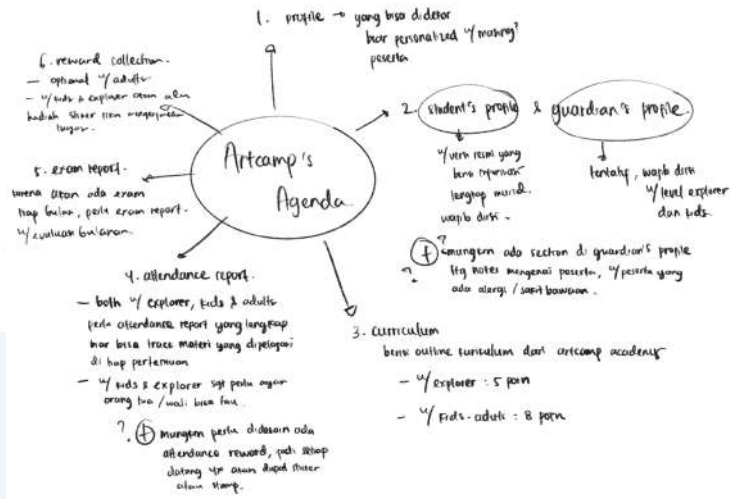 Artcamp's
Agenda
1. profile → yang bisa didetor
biar personalized u/ masing²
peserta
2. student's profile & guardian's profile.
u/ versi resmi yang
berisi informasi
lengkap murid.
wajib diisi.
tentatif, wajib diisi
u/ level explorer
dan kids.
? + mungkin ada section di guardian's profile
? ttg notes mengenai peserta, u/ peserta yang
ada alergi / sakit bawaan.
3. curriculum
berisi outline kurikulum dari artcamp academy
- u/ explorer : 5 poin
- u/ kids - adults : 8 poin
4. attendance report.
- both u/ explorer, kids & adults
perlu attendance report yang lengkap
biar bisa trace materi yang dipelajari
di tiap pertemuan
- u/ kids & explorer sgt perlu agar
orang tua / wali bisa tau.
? + mungkin perlu didesain ada
attendance reward, jadi setiap
datang ya akan dapat sticker
atau stamp.
5. exam report.
karena akan ada exam
tiap bulan, perlu exam report.
u/ evaluasi bulanan.
6. reward collection.
- optional u/ adults
- u/ kids & explorer akan ada
hadiah sticker mengerjakan
tugas.